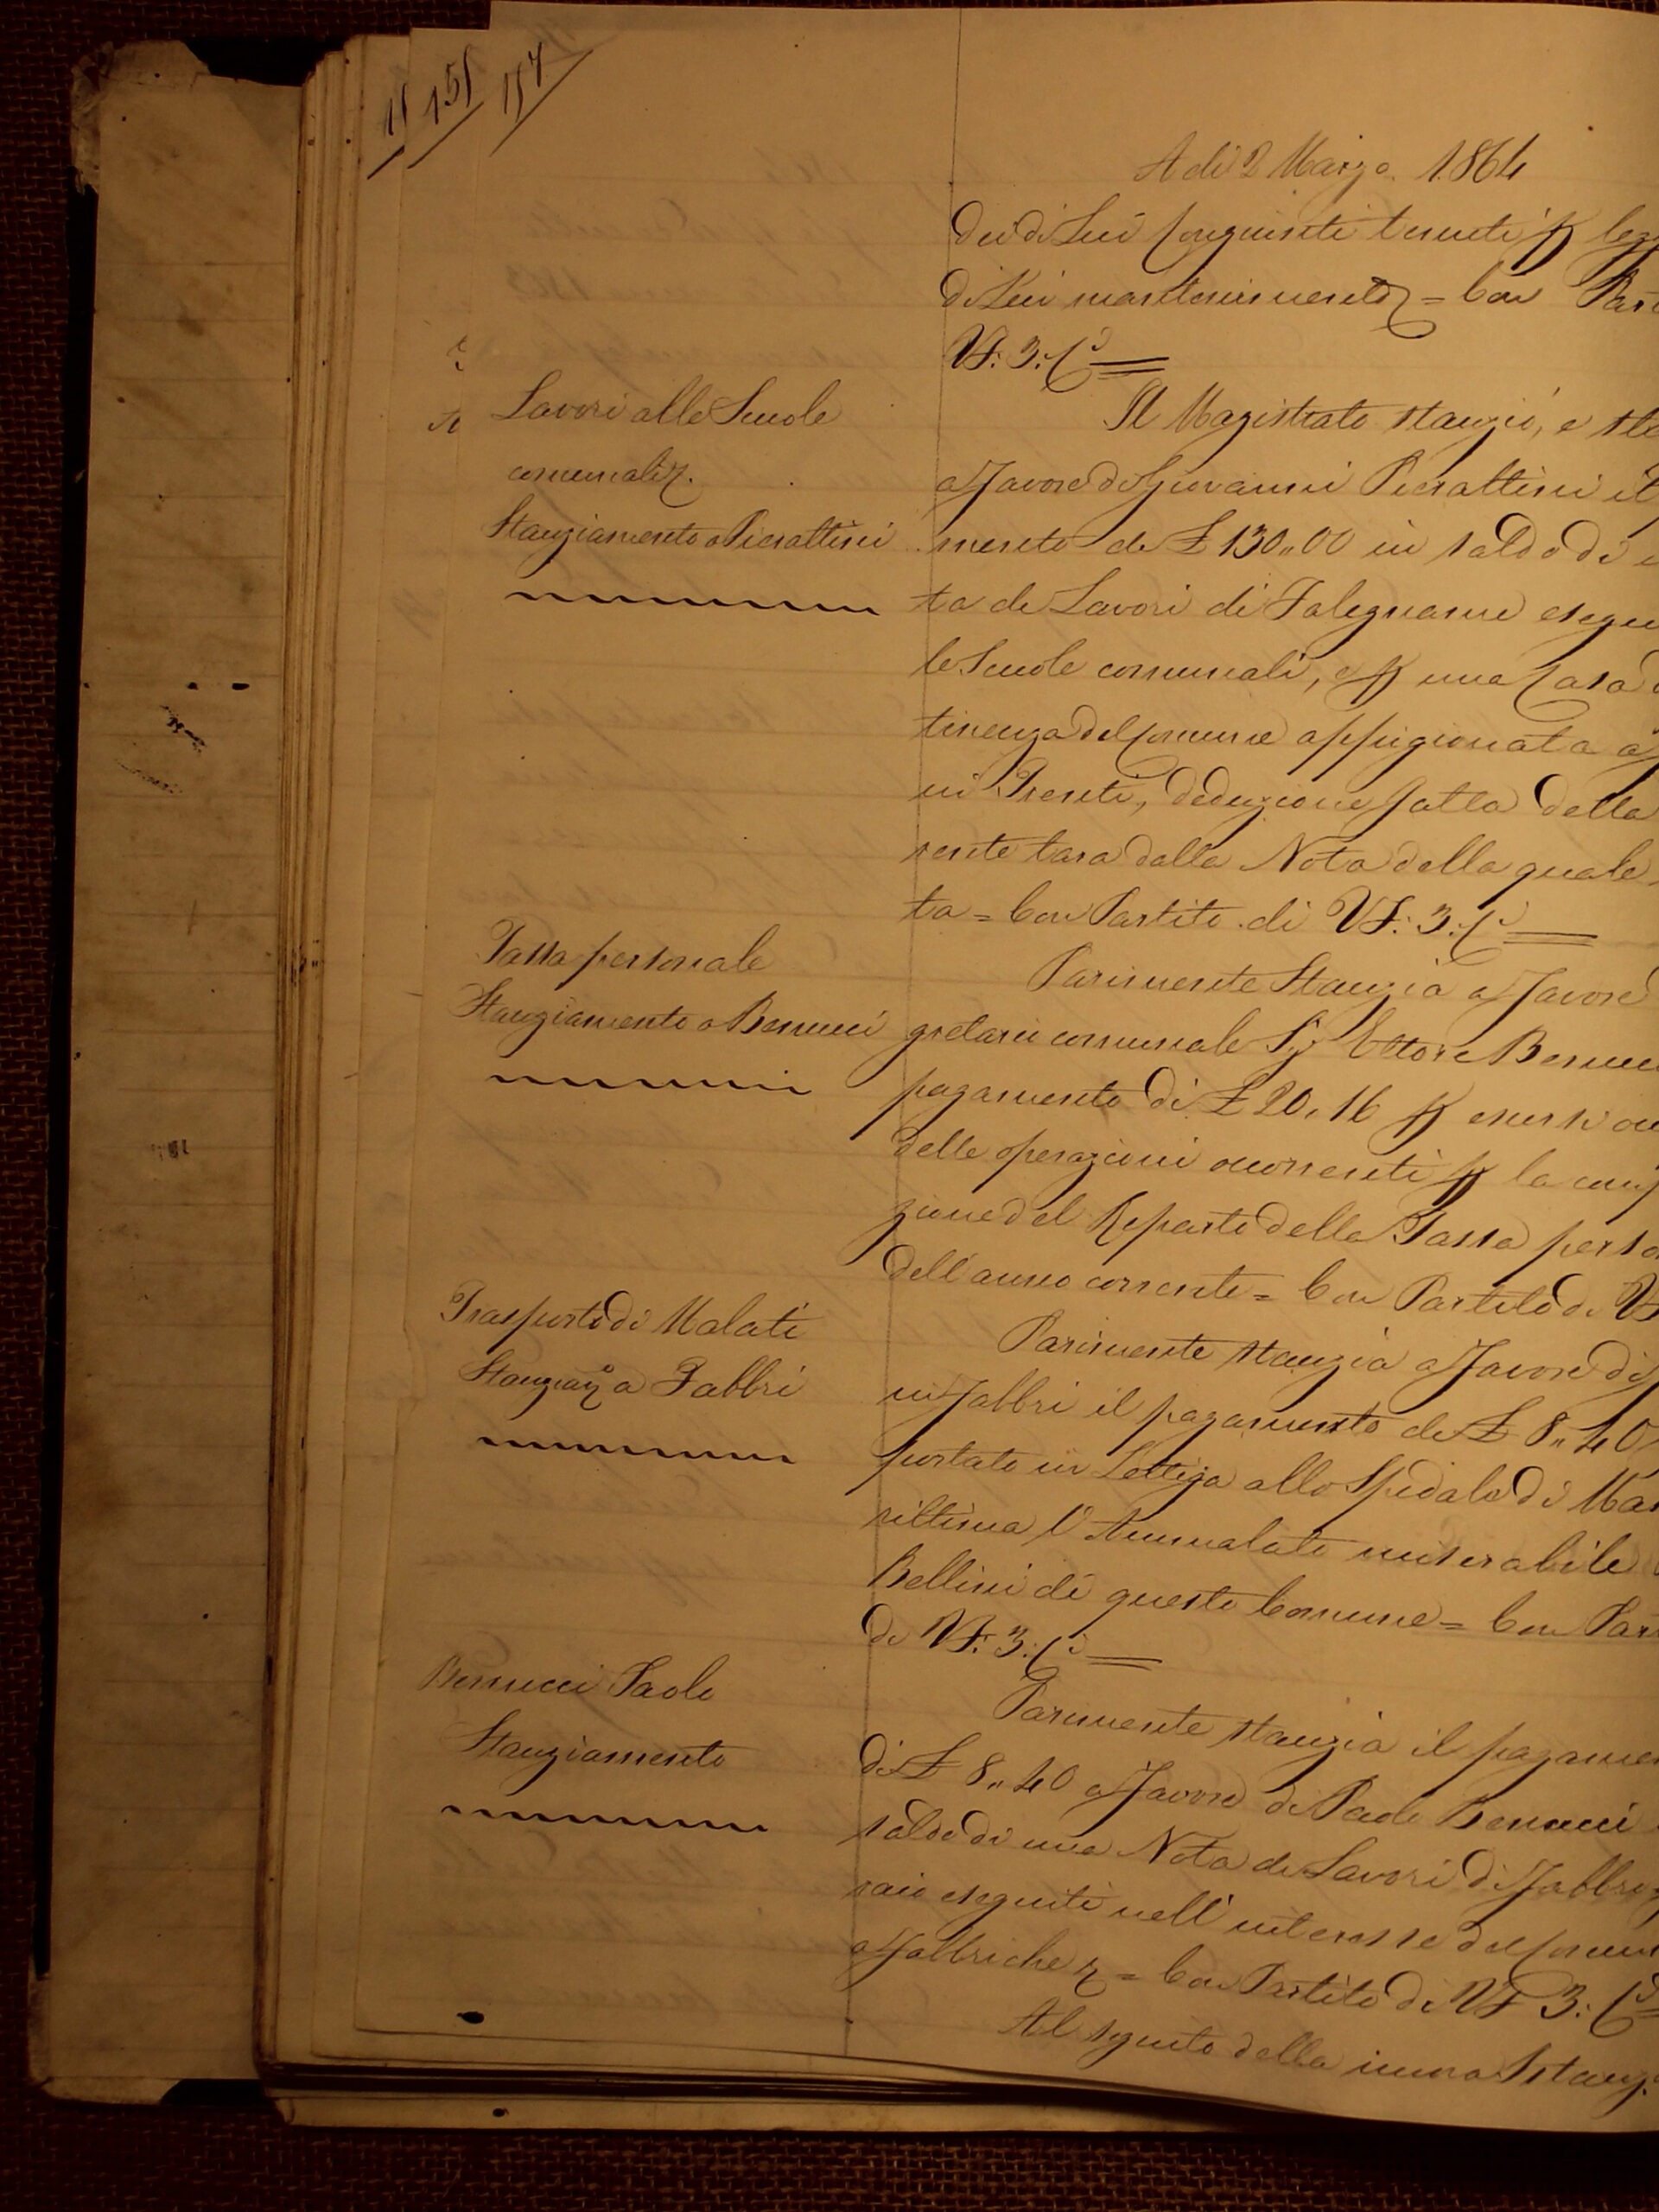 157
A dì 2 Marzo 1864
dei di Lui Congiunti tenuti p legg
di Lui mantenimento = Con Part
VF: 3: Ci
Lavori alle Scuole
comunali.
Stanziamento a Pierattini
Il Magistrato stanziò, e sta
a favore di Giovanni Pierattini il
mento di £ 130,,00 in saldo di
ta di Lavori di Falegname esegui
le Scuole comunali, e p una Casa d
tinenza del Comune appigionata a
ni Prenti, deduzione fatta della
rente tara dalla Nota della quale
ta = Con Partito di VF: 3: Ci
Tassa personale
Stanziamento a Benucci
Parimente Stanzia a favore
gretario comunale Sig Ettore Benuc
pagamento di £ 20,16 p essersi occ
delle operazioni occorrenti p la comp
zione del Reparto della Tassa perso
dell'anno corrente = Con Partito di VF
Trasporto di Malati
Stanziam° a Fabbri
Parimente stanzia a favore di
ni Fabbri il pagamento di £ 8,,40
portato in Lettiga allo Spedale di Mas
rittima l'Ammalato miserabile
Bellini di questo Comune = Con Part
di VF: 3: Ci
Benucci Paolo
Stanziamento
Parimente stanzia il pagamen
di £ 8,,40 a favore di Paolo Benucci
saldo di una Nota di Lavori di Fabbro
raio eseguiti nell'interesse del Comun
a Fabbriche = Con Partito di VF 3: Ci
Al seguito della innova Istanz